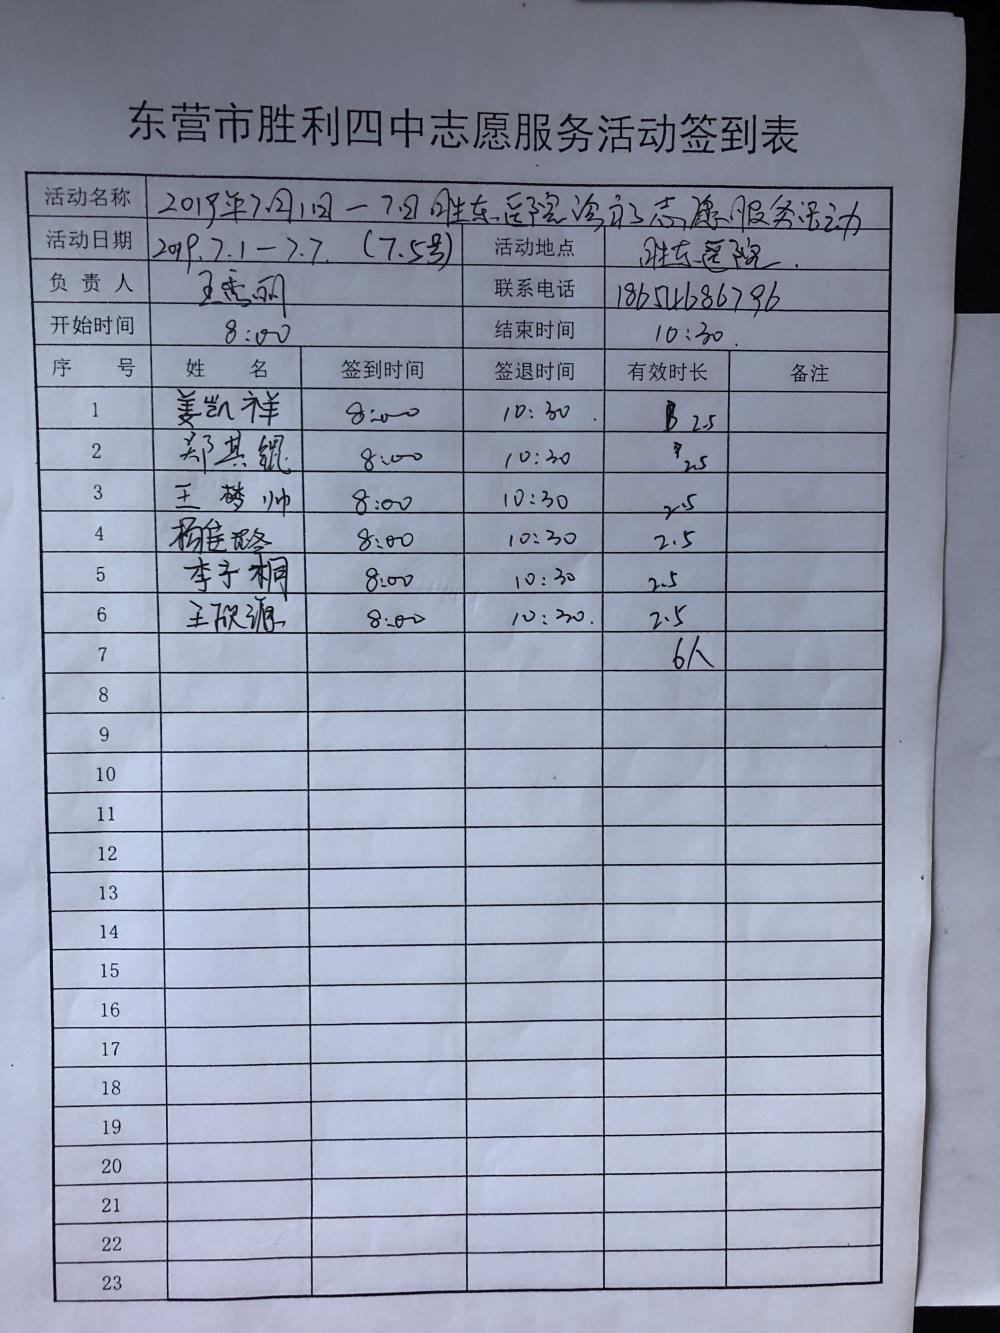 东营市胜利四中志愿服务活动签到表
活动名称 2019年7月1日一7日胜东医院 志愿服务活动
活动日期 2019.7.1一7.7. (7.5号) 活动地点 胜东医院.
负责人 王秀丽 联系电话 18654686796
开始时间 8:00 结束时间 10:30.
序号 姓名 签到时间 签退时间 有效时长 备注
1 姜凯祥 8:00 10:30. 2.5
2 郑其锟 8:00 10:30 2.5
3 王梦帅 8:00 10:30 2.5
4 杨佳璐 8:00 10:30 2.5
5 李子桐 8:00 10:30 2.5
6 王欣源 8:00 10:30. 2.5
7 6人
8
9
10
11
12
13
14
15
16
17
18
19
20
21
22
23